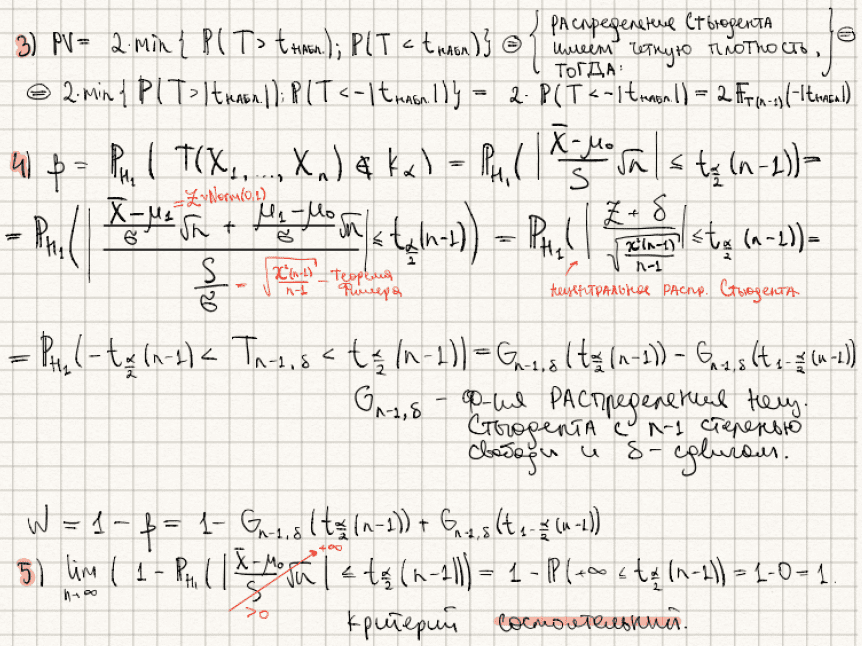 3) PV = 2·min{ P(T > t_набл.); P(T < t_набл.)} ⊜ { Распределение Стьюдента имеет четную плотность, тогда: } ⊜
⊜ 2·min{ P(T>|t_набл.|); P(T < -|t_набл.|)} = 2· P(T < -|t_набл.|) = 2 F_{T(n-1)}(-|t_набл.|)
4) β = P_{H_1}( T(X_1, ..., X_n) ∉ K_α) = P_{H_1}( | (X̄-μ_0)/S √n | ≤ t_{α/2}(n-1)) =
= P_{H_1}( | ( (X̄-μ_1)/σ √n + (μ_1-μ_0)/σ √n ) / (S/σ) | ≤ t_{α/2}(n-1)) = P_{H_1}( | (Z + δ)/√(χ²(n-1)/(n-1)) | ≤ t_{α/2}(n-1)) =
= Z ~ Norm(0,1)
= √(χ²(n-1)/(n-1)) - Теорема Фишера
нецентральное распр. Стьюдента
= P_{H_1}(-t_{α/2}(n-1) < T_{n-1,δ} < t_{α/2}(n-1)) = G_{n-1,δ}(t_{α/2}(n-1)) - G_{n-1,δ}(t_{1-α/2}(n-1))
G_{n-1,δ} - ф-ия распределения нец.
Стьюдента с n-1 степенью
свободы и δ - сдвигом.
W = 1 - β = 1 - G_{n-1,δ}(t_{α/2}(n-1)) + G_{n-1,δ}(t_{1-α/2}(n-1))
5) lim_{n→∞} ( 1 - P_{H_1}( | (X̄-μ_0)/S √n | ≤ t_{α/2}(n-1))) = 1 - P(+∞ ≤ t_{α/2}(n-1)) = 1-0 = 1.
+∞
>0
критерий состоятельный.